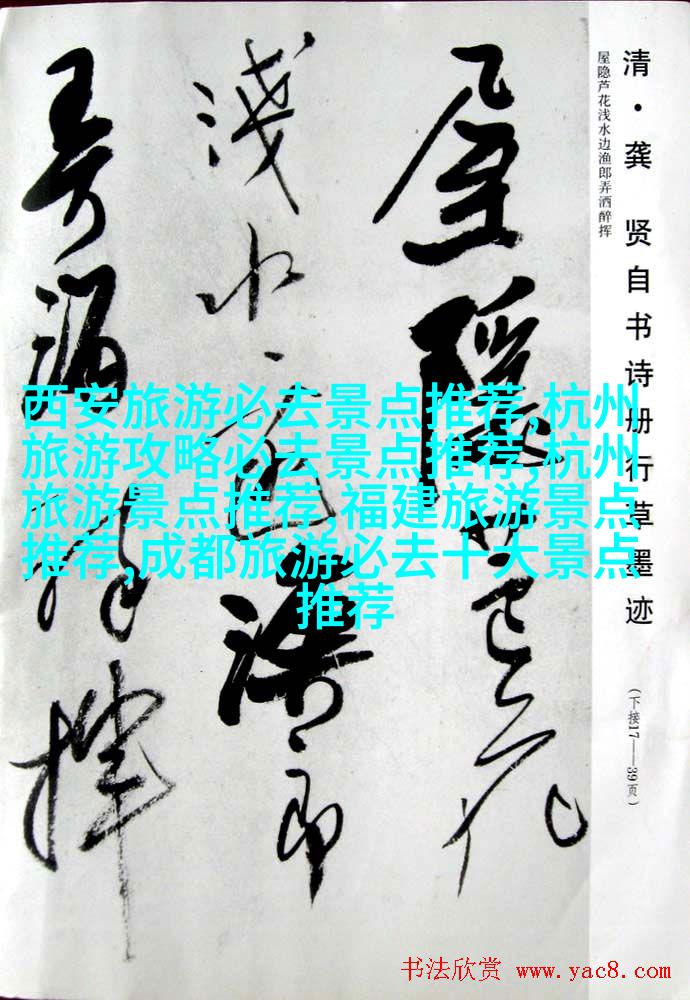 清·龚 贤自书诗册行草墨迹
(下接17——39页)
屋隐芦花浅水边渔郎弄洒醉挥
屋隱芦花
淺水邊漁郎
弄酒醉揮
西安旅游必去景点推荐,杭州
旅游攻略必去景点推荐,杭州
旅游景点推荐,福建旅游景点
推荐,成都旅游必去十大景点
推荐
书法欣赏 www.yac8.com